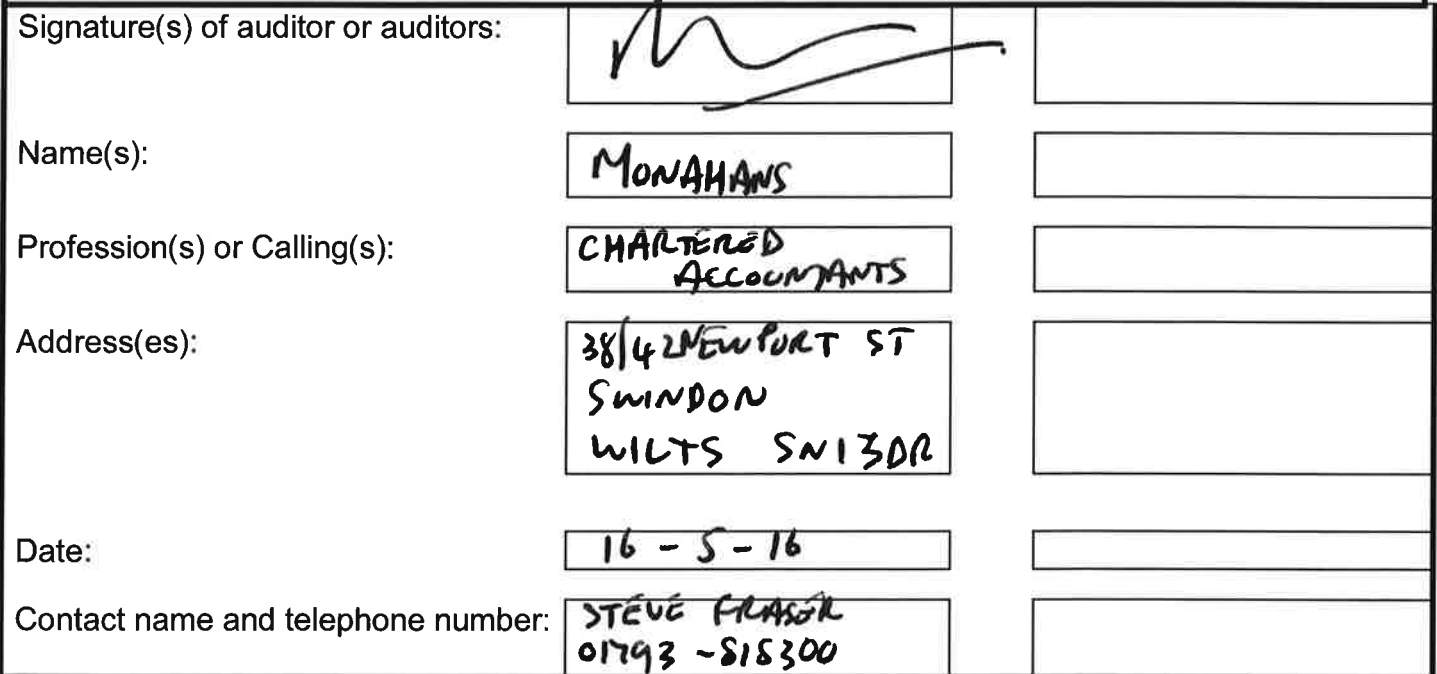 Signature(s) of auditor or auditors:
Name(s):
MONAHANS
Profession(s) or Calling(s):
CHARTERED
ACCOUNTANTS
Address(es):
38/42 NEWPORT ST
SWINDON
WILTS SN1 3DR
Date:
16 - 5 - 16
Contact name and telephone number:
STEVE FRASER
01793 - 818300